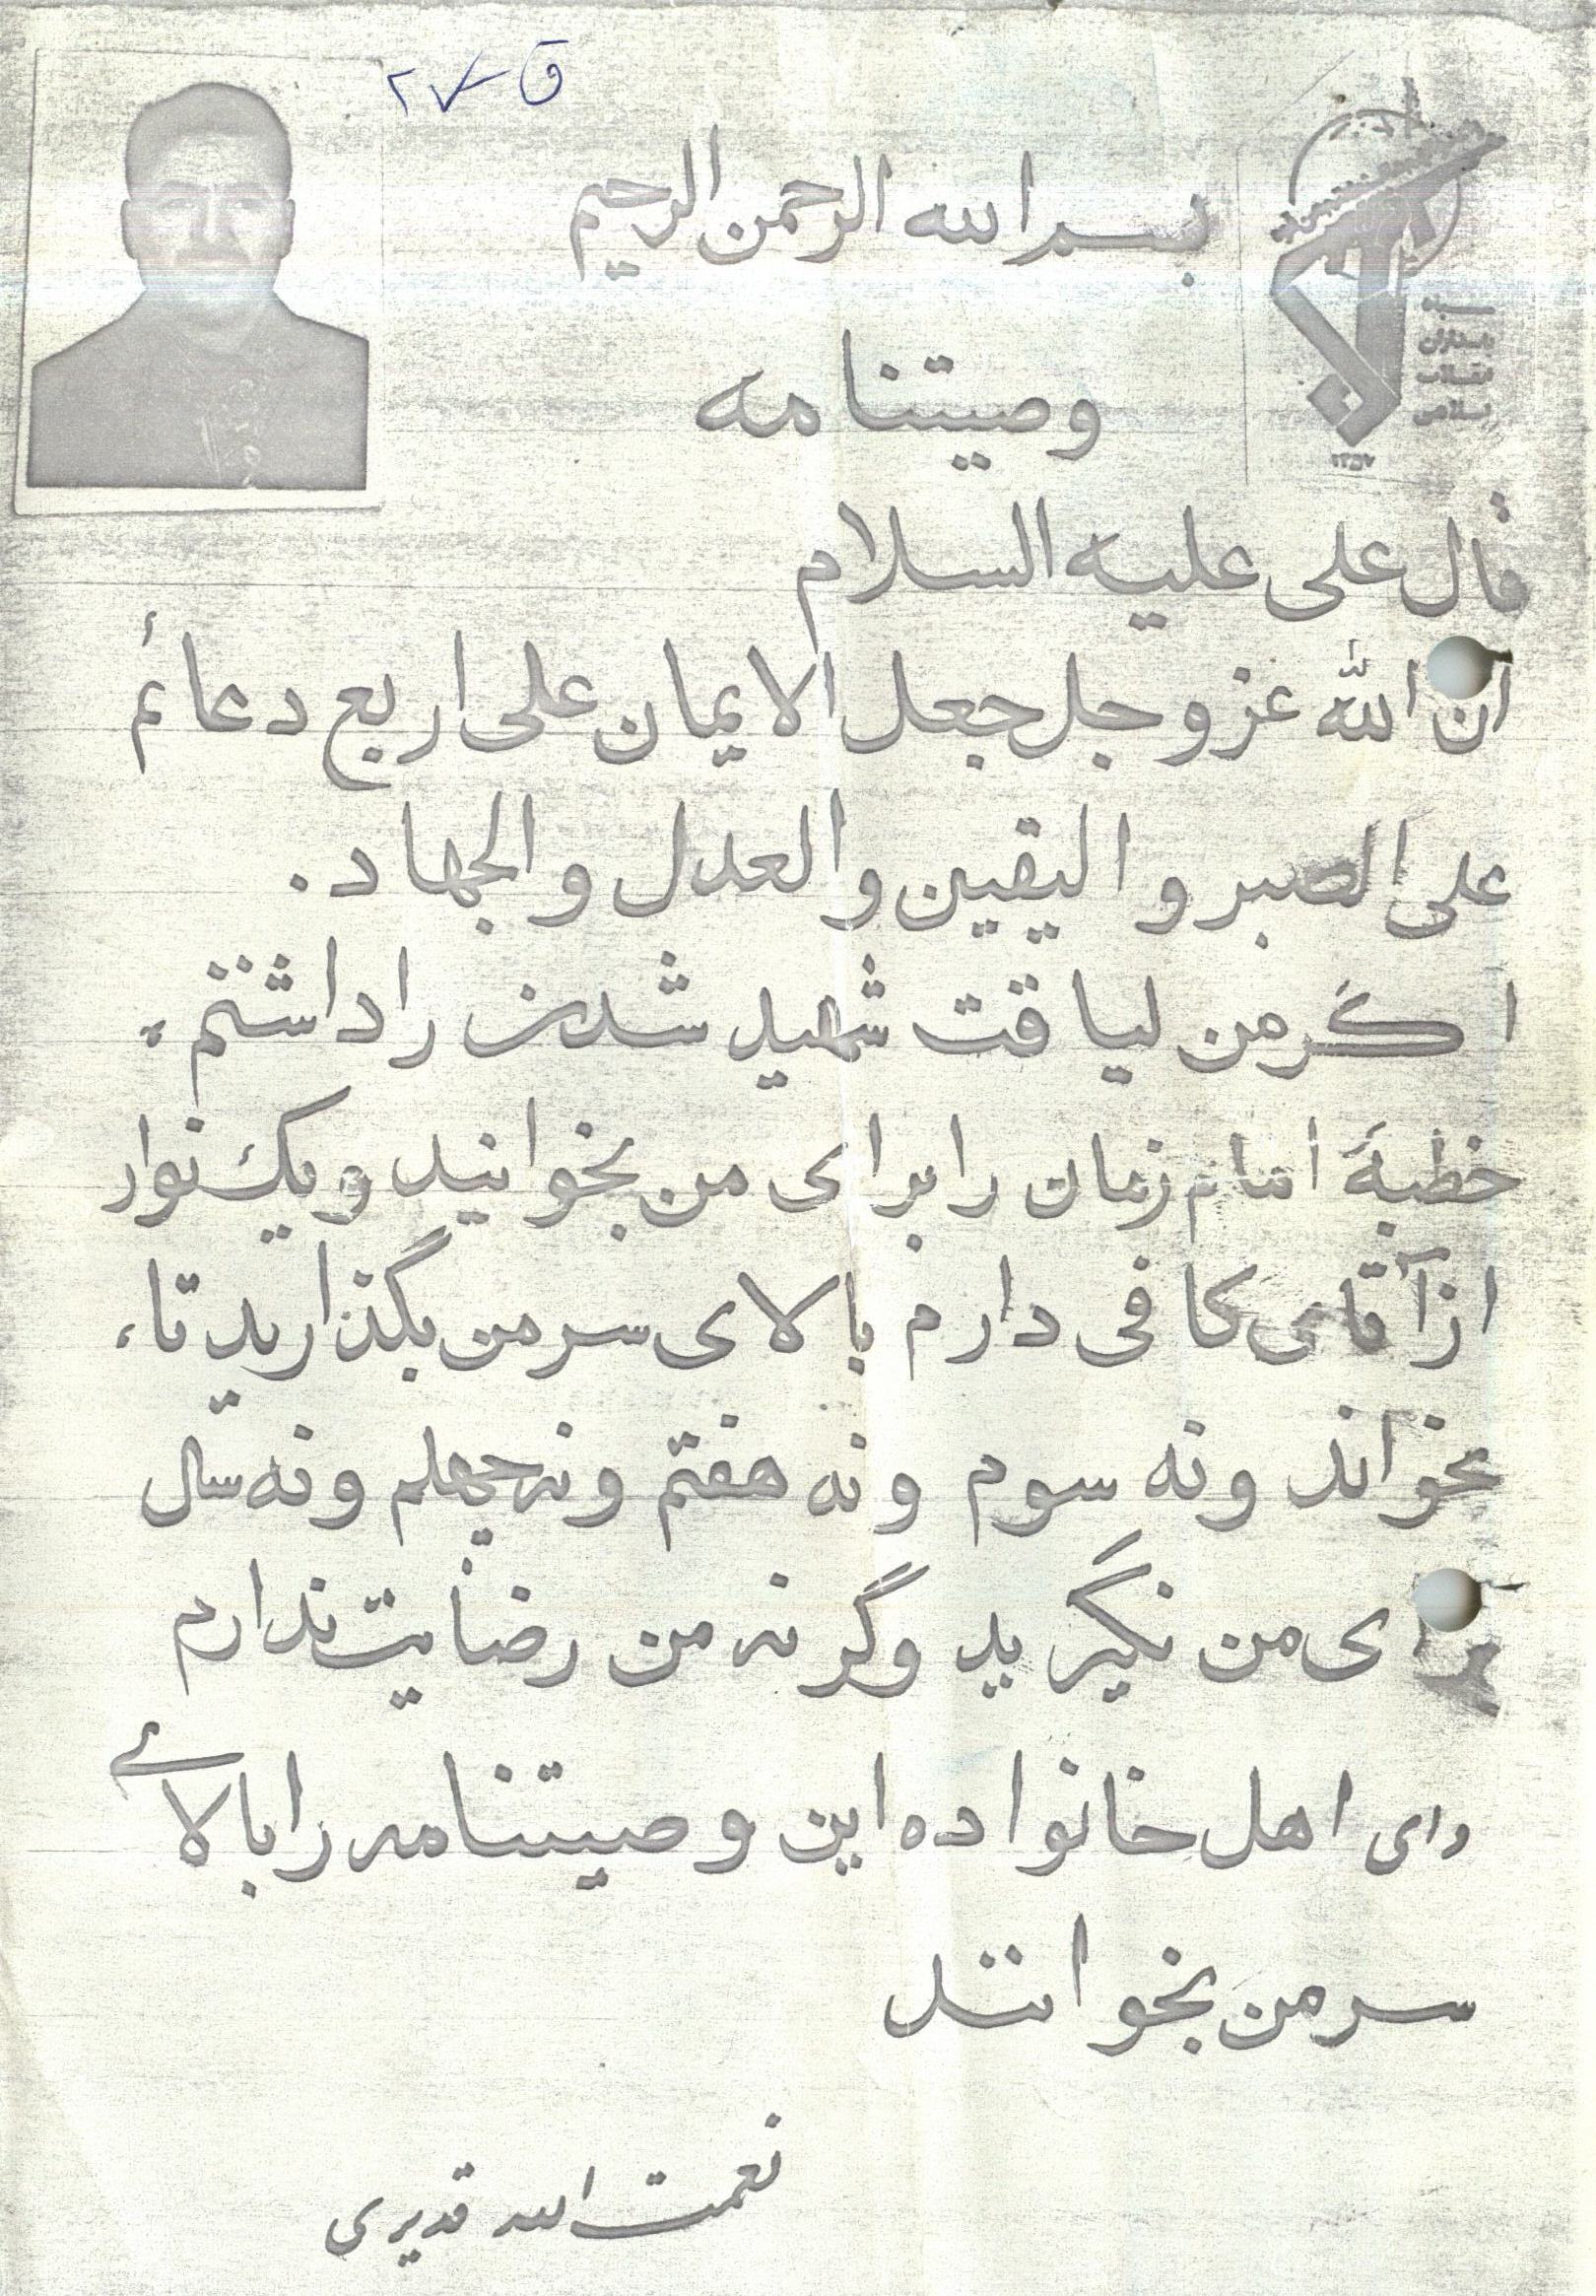 ق ۲۷
بسم الله الرحمن الرحیم
سپاه
پاسداران
انقلاب
اسلامی
۱۳۵۷
وصیتنامه
قال علی علیه السلام
ان الله عز و جل جعل الایمان علی اربع دعائم
علی الصبر و الیقین و العدل و الجهاد.
اگر من لیاقت شهید شدن را داشتم،
خطبهٔ امام زمان را برای من بخوانید و یک نوار
از آقای کافی دارم بالای سر من بگذارید تا،
بخواند و نه سوم و نه هفتم و نه چهلم و نه سال
برای من نگیرید وگرنه من رضایت ندارم
وای اهل خانواده این وصیتنامه را بالای
سر من بخوانند
نعمت الله قدیری